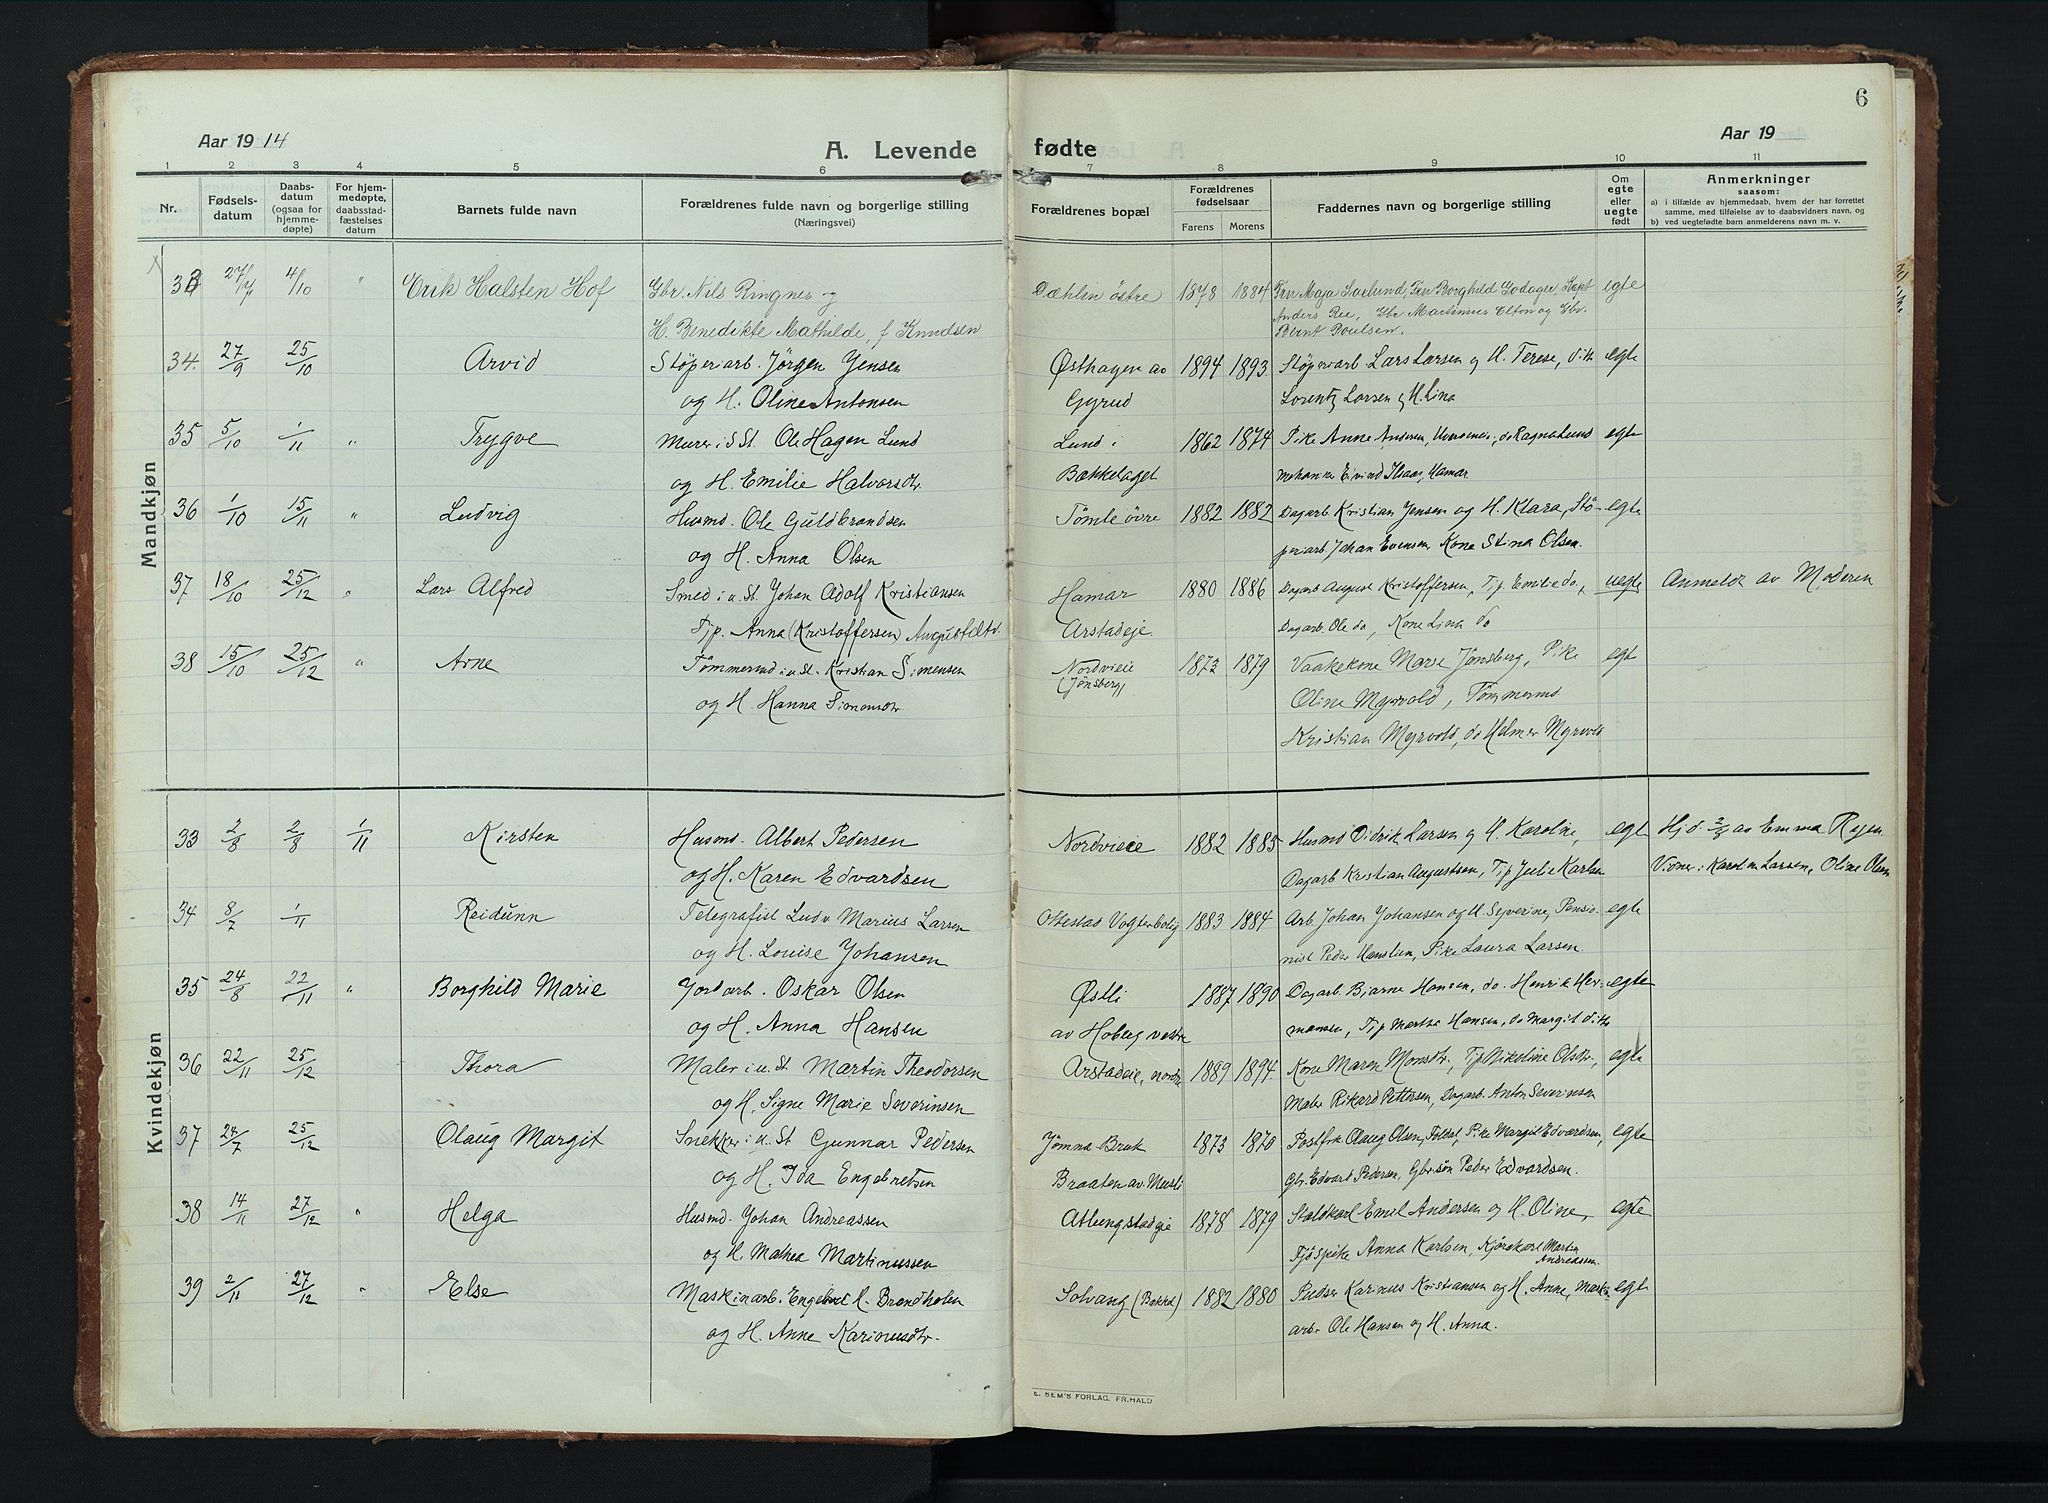 6
Aar 1914
A. Levende fødte
Aar 19
1 2 3 4 5 6 7 8 9 10 11
Nr.
Fødsels-
datum
Daabs-
datum
(ogsaa for
hjemme-
døpte)
For hjem-
medøpte,
daabsstad-
fæstelses
datum
Barnets fulde navn
Forældrenes fulde navn og borgerlige stilling
(Næringsvei)
Forældrenes bopæl
Forældrenes
fødselsaar
Farens Morens
Faddernes navn og borgerlige stilling
Om
egte
eller
uegte
født
Anmerkninger
saasom:
a) i tilfælde av hjemmedaab, hvem der har forrettet
samme, med tilføielse av to daabsvidners navn, og
b) ved uegtefødte barn anmelderens navn m. v.
Mandkjøn
33 27/7 4/10 " Erik Halsten Hof Gbr. Nils Ringnes og Dæhlin østre 1878 1884 Fru Maja Saxlund, Fru Borghild Godager, Kapt egte
H. Benedikte Mathilde, f Knudsen Anders Ree, Gbr Martinius Elton og Gbr.
Bernt Poulsen.
34. 27/9 25/10 Arvid Støperiarb. Jørgen Jensen Østhagen av 1894 1893 Støperiarb Lars Larsen og H. Terese, dito egte
og H. Oline Antonsen Gyrud Lorentz Larsen og H. Lina
35 5/10 1/11 " Trygve Murer i S St. Ole Hagen Lund Lund i 1862 1874 Pike Anne Andersen, do Ragna Lund egte
og H. Emilie Halvorsdtr. Bækkelaget Eivind Hamar
36 1/10 15/11 " Ludvig Husmd. Ole Guldbrandsen Tømte øvre 1882 1882 Dagarb. Kristian Jensen og H. Klara, Stø- egte
og H. Anna Olsen periarb. Johan Evensen Kone Stina Olsen.
37 18/10 25/12 " Lars Alfred Smed i u. St. Johan Adolf Kristiansen Hamar 1880 1886 Dagarb August Kristoffersen, Tjp. Emilie do, uegte Anmeldt av Moderen
Tjp. Anna (Kristoffersen) Augustdtr. Arstadeje. Dagarb. Ole do, Kone Lina do
38 15/10 25/12 " Arne Tømmermd i u. St. Kristian Simensen Nordvieie 1873 1879 Kone Marie Jønsberg, Pike egt
og H. Hanna Simensdtr (Jønsberg) Oline Myrvold, Tømmermd.
Kristian Myrvold, do Helmer Myrvold
Kvindekjøn
33 2/8 2/8 1/11 Kirsten Husmd. Albert Pedersen Nordvieie 1882 1885 Husmd Didrik Larsen og H. Karoline, egt Hjd. 2/8 av Emma Rogen
og H. Karen Edvardsen Dagarb Kristian Augustsen, Tjp Julie Karlsen Vidner: Karolin Larsen, Oline Olsen
34 8/7 1/11 Reidunn Telegrafist Ludv Marius Larsen Ottestad Vogterbolig 1883 1884 Arb Johan Johansen og H. Syverine, Pensio- egte
og H. Louise Johansen nist Peder Hanslien, Pike Laura Larsen
35 24/8 22/11 " Borghild Marie Jordarb. Oskar Olsen Østli 1887 1890 Dagarb. Bjarne Hansen, do. Henrik Her- egte
og H. Anna Hansen av Hoberg vestre mansen, Tjp Marthe Hansen, do Margit ditto
36 22/11 25/12 " Thora Maler i u. St Martin Theodorsen Arstadeie, nordre 1889 1894. Kone Maren Monsdtr, Tjp Nikoline Olsdtr, egte
og H. Signe Marie Severinsen Maler Rikard Pettersen, Dagarb. Anton Severinsen
37 24/7 25/12 " Olaug Margit Snekker i u. St Gunnar Pedersen Jømna Bruk 1873 1870 Postfrk Olaug Olsen, Foldal, Pike Margit Edvardsen, egte
og H. Ida Engebretsen Braaten av Musli Gbr. Edvard Pedersen, Gbr.søn Peder Edvardsen.
38 14/11 27/12 " Helga Husmd. Johan Andreassen Atlungstadeje 1878 1879 Staldkarl Emil Andersen og H. Oline, egte
og H. Mathea Martinussen Fjøspike Anna Karlsen, Kjørekarl Martin
Andreassen
39 2/11 27/12 " Else Maskinarb. Engebret M. Brendholen Solvang (Bekkel) 1882 1880 Pudser Karinus Kristiansen og H. Anne, Maskin- egte
og H. Anne Karinusdtr. arb. Ole Hansen og H. Anna.
E. SEM'S FORLAG, FR.HALD